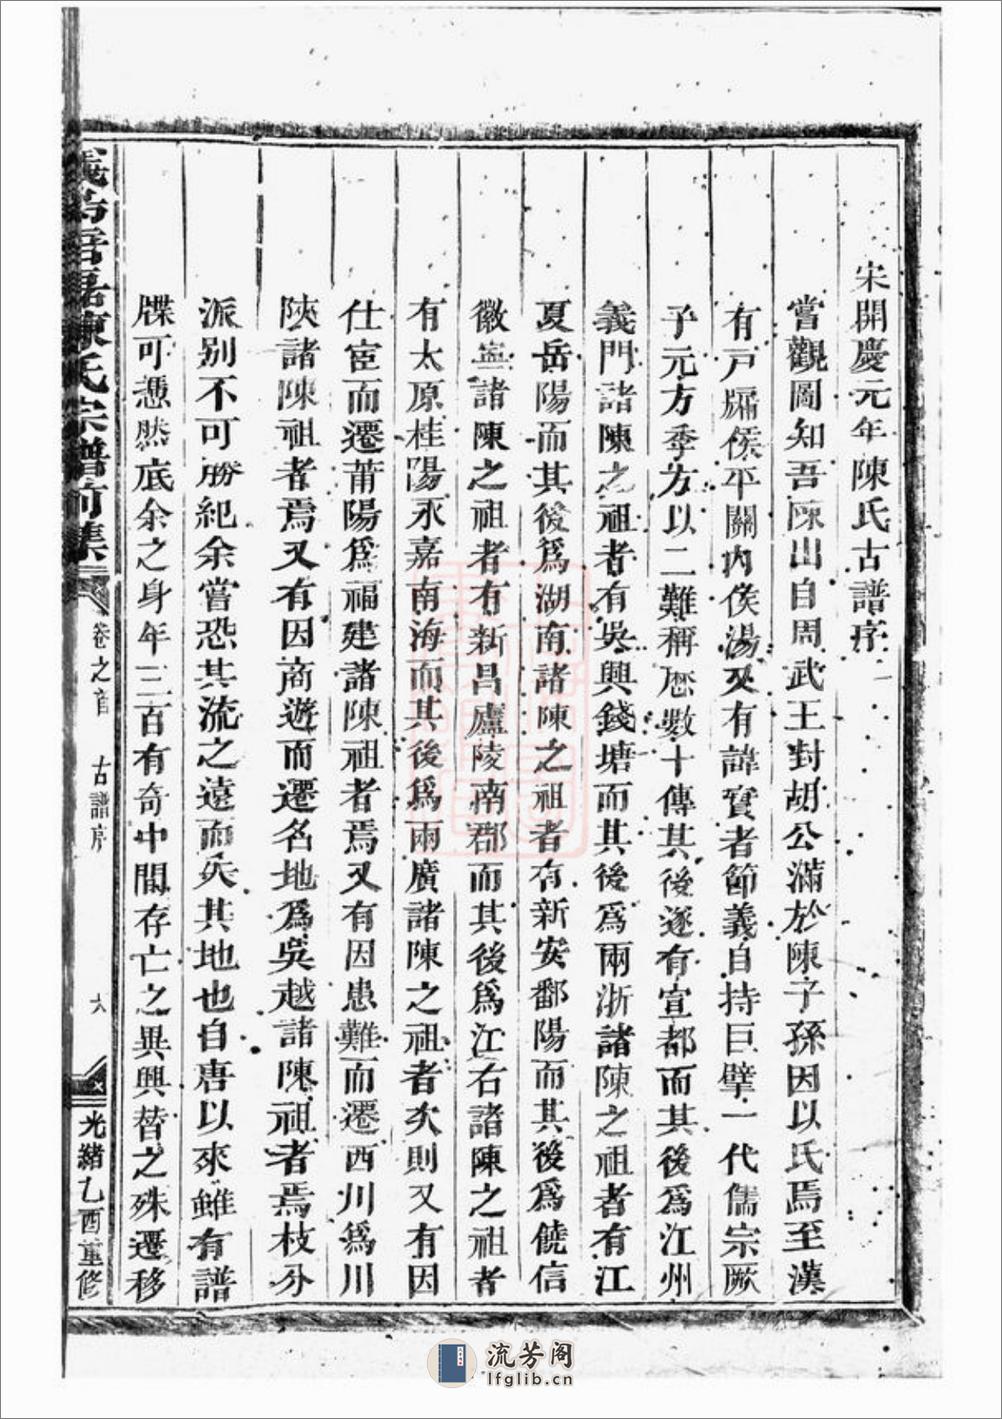 宋開慶元年陳氏古譜序
嘗觀圖知吾陳出自周武王封胡公滿於陳子孫因以氏焉至漢
有戸牖侯平關內侯湯又有諱寔者節義自持巨擘一代儒宗厥
子元方季方以二難稱歷數十傳其後遂有宣都而其後爲江州
義門諸陳之祖者有吳興錢塘而其後爲兩浙諸陳之祖者有江
夏岳陽而其後爲湖南諸陳之祖者有新安鄱陽而其後爲饒信
徽寧諸陳之祖者有新昌廬陵南郡而其後爲江右諸陳之祖者
有太原桂陽永嘉南海而其後爲兩廣諸陳之祖者矣則又有因
仕宦而遷莆陽爲福建諸陳祖者焉又有因患難而遷西川爲川
陝諸陳祖者焉又有因商遊而遷名地爲吳越諸陳祖者焉枝分
派別不可勝紀余嘗恐其流之遠而失其地也自唐以來雖有譜
牒可憑然底余之身年三百有奇中間存亡之異興替之殊遷移
陳氏宗譜前集
卷之首
古譜序
六
光緒乙酉重修
流芳阁
lfglib.cn